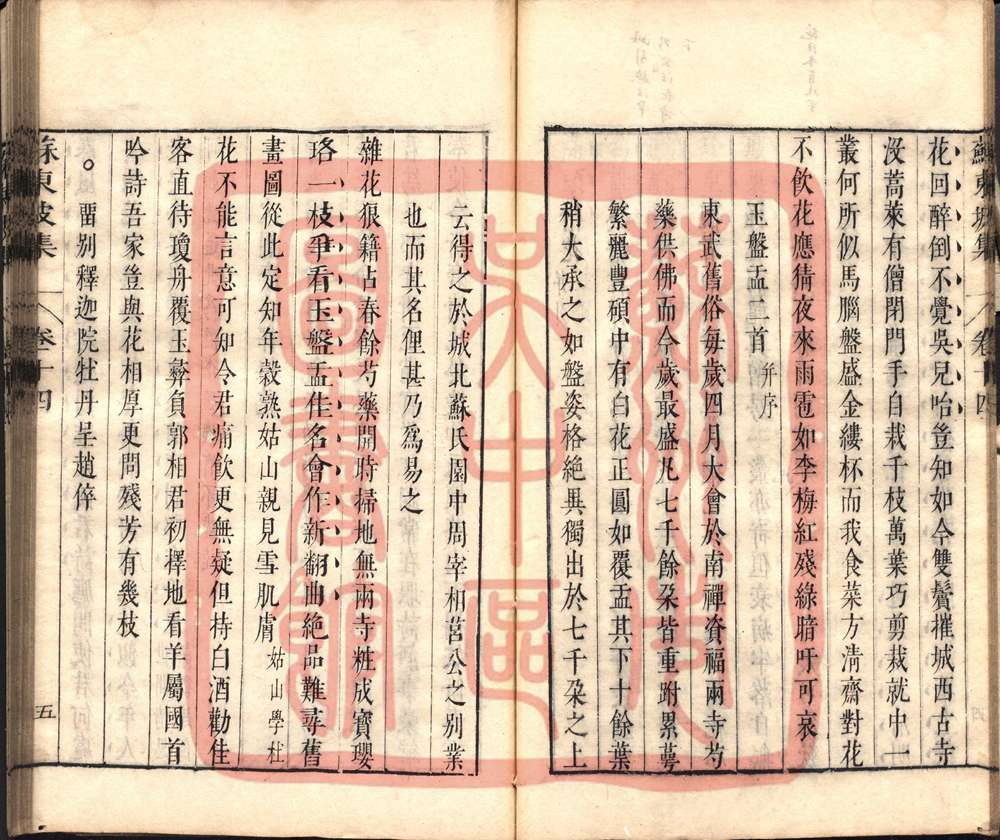 蘇東坡集 卷十四
花回醉倒不覺吳兒咍豈知如今雙鬢摧城西古寺
沒蒿萊有僧閉門手自栽千枝萬葉巧剪裁就中一
叢何所似馬腦盤盛金縷杯而我食菜方清齋對花
不飲花應猜夜來雨雹如李梅紅殘綠暗吁可哀
玉盤盂二首 并序
東武舊俗每歲四月大會於南禪資福兩寺芍
藥供佛而今歲最盛凡七千餘朶皆重跗累萼
繁麗豐碩中有白花正圓如覆盂其下十餘葉
稍大承之如盤姿格絶異獨出於七千朶之上
云得之於城北蘇氏園中周宰相莒公之別業
也而其名俚甚乃爲易之
雜花狼籍占春餘芍藥開時掃地無兩寺粧成寳瓔
珞一枝爭看玉盤盂佳名會作新翻曲絶品難尋舊
畫圖從此定知年穀熟姑山親見雪肌膚 姑山學杜
花不能言意可知令君痛飲更無疑但持白酒勸佳
客直待瓊舟覆玉彝負郭相君初擇地看羊屬國首
吟詩吾家豈與花相厚更問殘芳有幾枝
。 留別釋迦院牡丹呈趙倅
蘇東坡集 卷十四 五
蘇州市
吳中區
圖書館